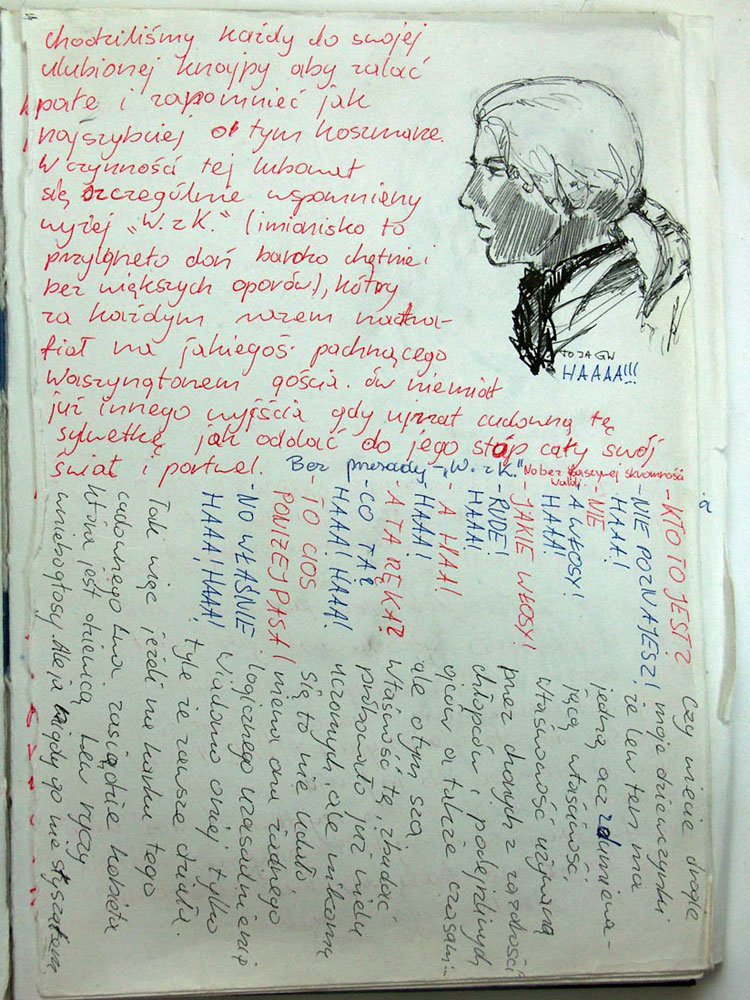 chodziliśmy każdy do swojej
ulubionej knajpy aby zalać
pałę i zapomnieć jak
najszybciej o tym koszmarze.
W czynności tej lubował
się szczególnie wspomniany
wyżej „W. z K." (imionisko to
przylgnęło doń bardzo chętnie i
bez większych oporów), który
za każdym razem natra-
fiał na jakiegoś pachnącego
Waszyngtonem gościa. Ów niemiał
już innego wyjścia gdy ujrzał cudowną tę
sylwetkę jak oddać do jego stóp cały swój
świat i portwel.
TO JA GW
HAAAA!!!
Bez przesady - „W. z K."
No bez fałszywej skromności
- KTO TO JEST?
- NIE POZNAJESZ!
HAAA!
- NIE
- A WŁOSY!
HAAA!
- JAKIE WŁOSY!
- RUDE!
HAAA!
- A HAA!
HAAA!
- A TA RĘKA?
- CO TA?
HAAA! HAAA!
- TO CIOS
PONIŻEJ PASA!
- NO WŁAŚNIE
HAAA! HAAA!
Czy wiecie drogie
moje dziewczynki
że lew ten ma
jedną acz zdumiewa-
jącą właściwość.
Właściwość używaną
przez chorych z zazdrości
chłopców i podejrzliwych
ojców a także czasami -
ale o tym sza.
Właśność tę, zbadać
próbowało już wielu
uczonych, ale nikomu
się to nie udało
niema ona żadnego
logicznego uzasadnienia
Wiadomo o niej tylko
tyle że zawsze działa.
Tak więc jeżeli na karku tego
cudownego lwa zasiądzie kobieta
która jest dziewicą Lew ryczy
wniebogłosy. Ale ja nigdy go nie słyszałem.